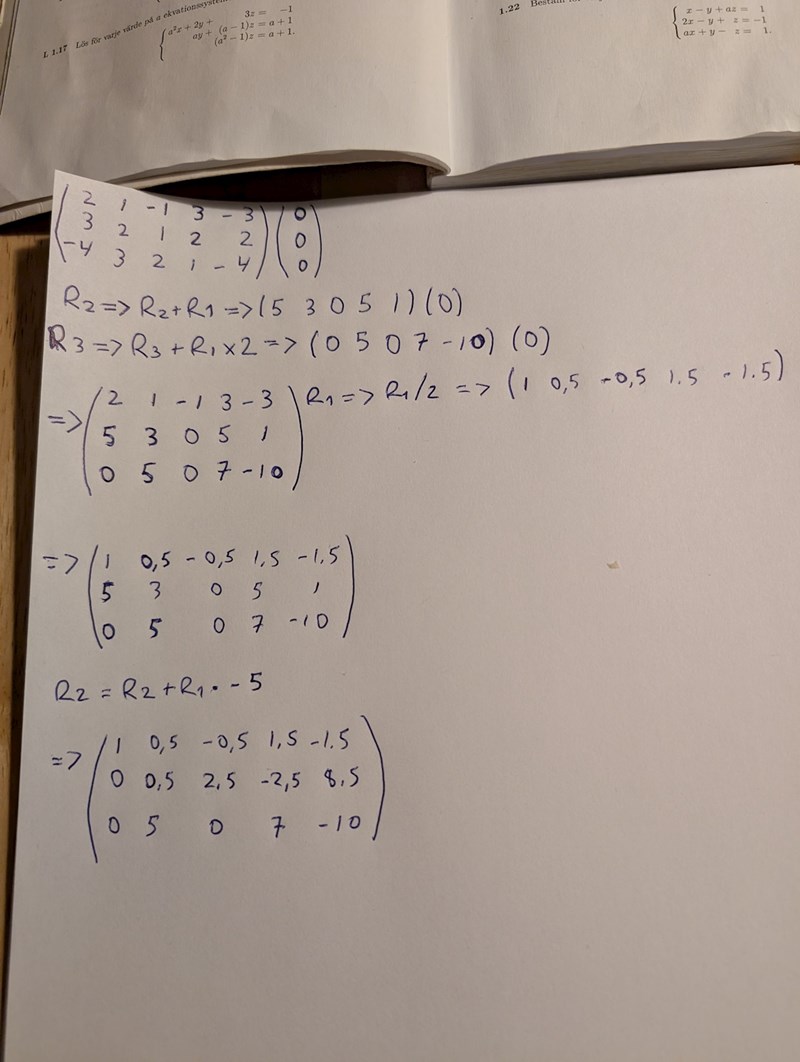 L 1.17 Lös för varje värde på a ekvationssystem
3z = −1
a²x + 2y +
ay + (a − 1)z = a + 1
(a² − 1)z = a + 1.
1.22
x − y + az = 1
2x − y + z = −1
ax + y − z = 1.
2 1 -1 3 -3 0
3 2 1 2 2 0
-4 3 2 1 -4 0
R2 => R2+R1 => (5 3 0 5 1) (0)
R3 => R3 + R1 × 2 => (0 5 0 7 -10) (0)
=> 2 1 -1 3 -3 R1 => R1/2 => (1 0,5 -0,5 1.5 -1.5)
5 3 0 5 1
0 5 0 7 -10
=> 1 0,5 -0,5 1,5 -1,5
5 3 0 5 1
0 5 0 7 -10
R2 = R2 + R1 · -5
=> 1 0,5 -0,5 1,5 -1.5
0 0,5 2,5 -2,5 8,5
0 5 0 7 -10